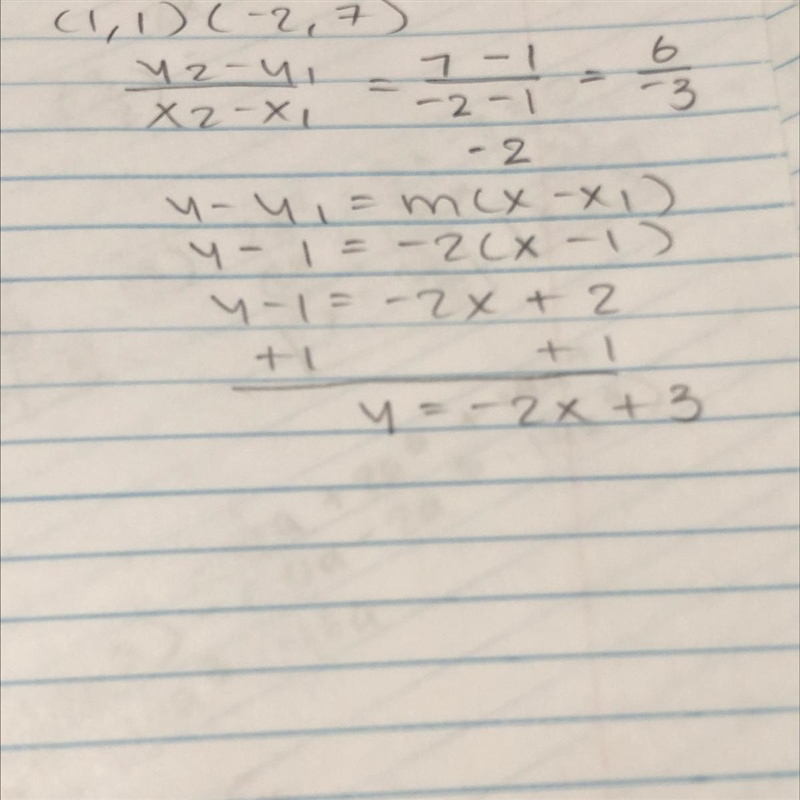 (1,1) (-2,7)
y2-y1 / x2-x1 = 7-1 / -2-1 = 6 / -3
-2
y-y1 = m(x-x1)
y-1 = -2(x-1)
y-1 = -2x+2
+1 +1
y = -2x+3